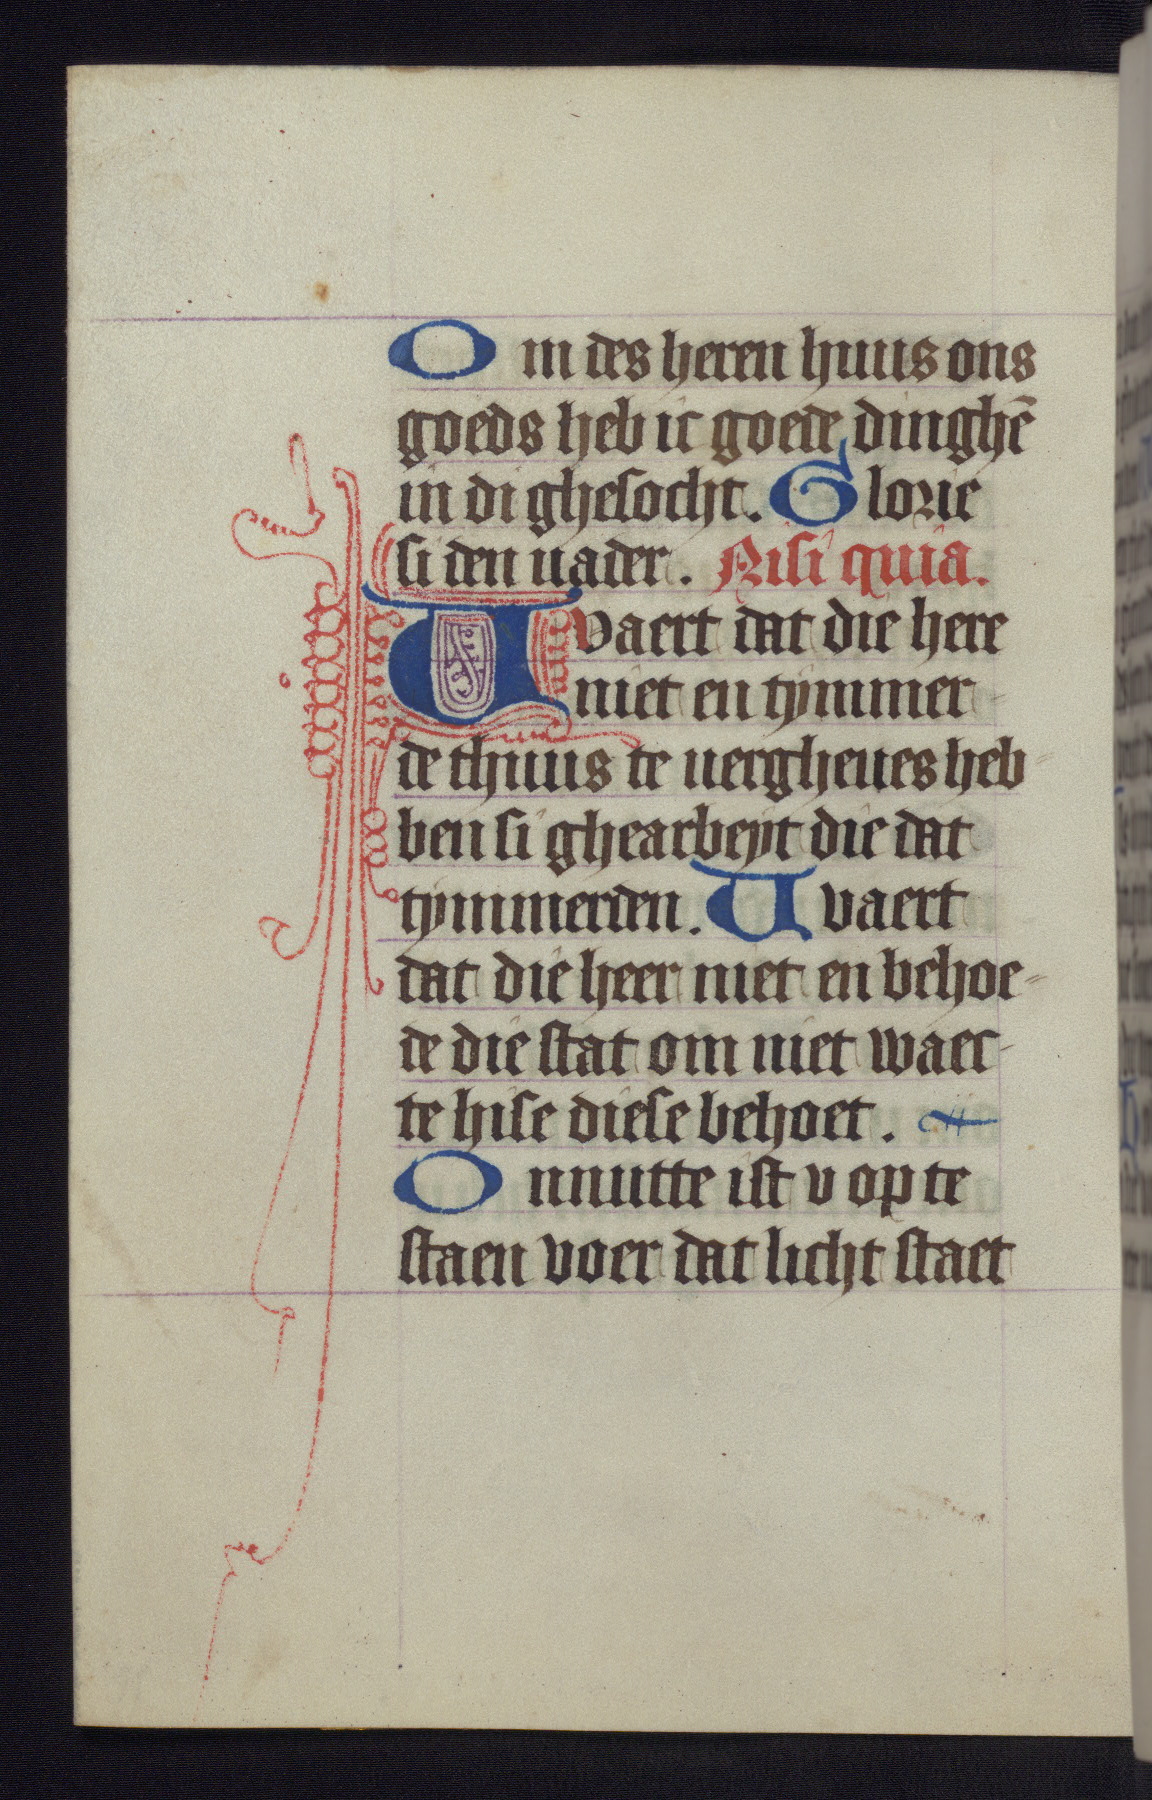 Om des heren huus ons
goeds heb ic goede dinghē
in di ghesocht. Glorie
si den uader. Nisi quia.
Tvaert dat die here
niet en tymmer
de thuus te uergheues heb
ben si ghearbeyt die dat
tymmerden. Tvaert
dat die heer niet en behoe-
de die stat om niet waec-
te hise diese behoet.
Onnutte ist v op te
staen voer dat licht staet